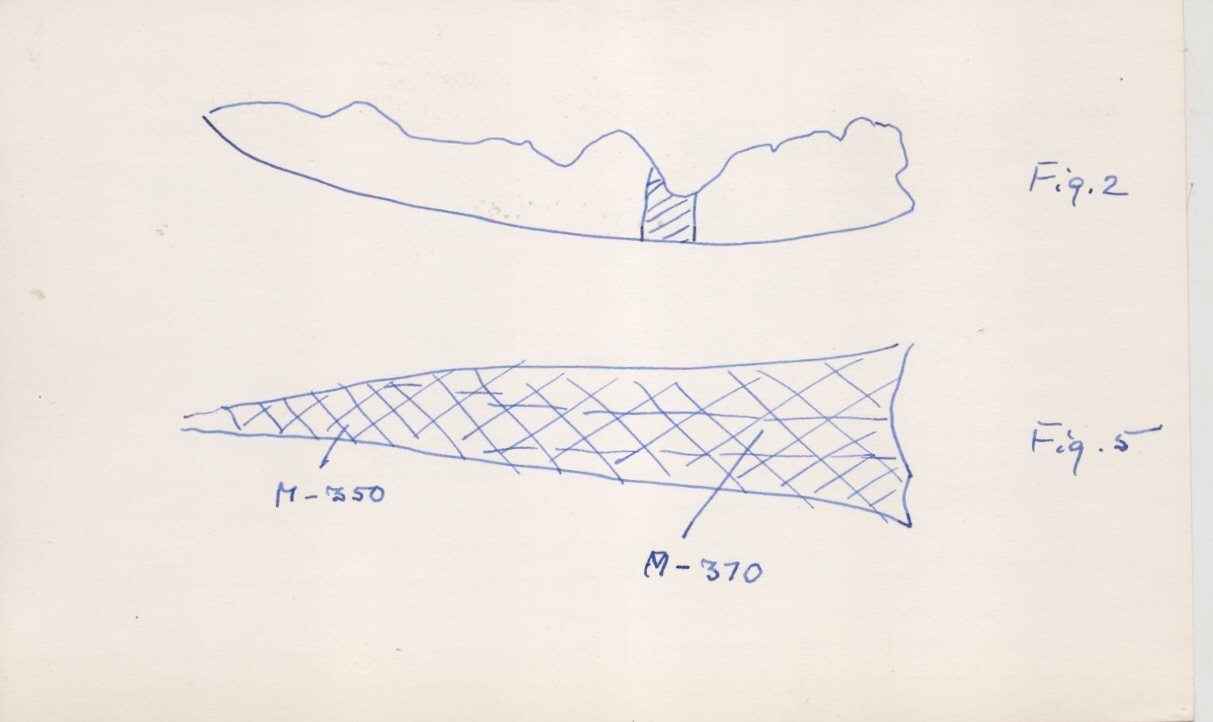 Fig. 2
Fig. 5
M-350
M-370